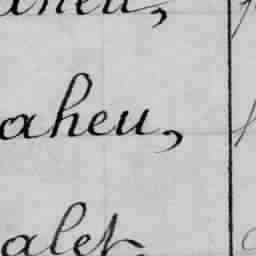 aheu,
aheu,
alet